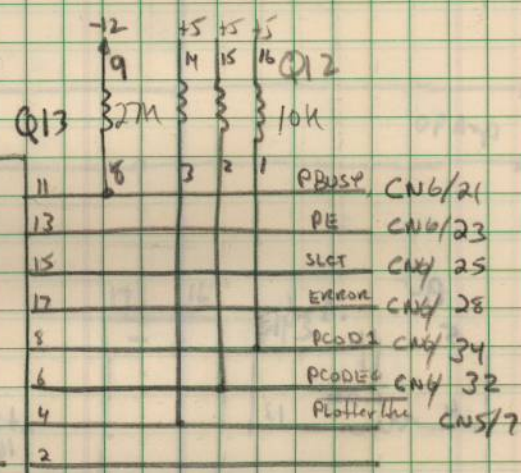 -12 +5 +5 +5
9 14 15 16 Q12
Q13 27K 10K
8 3 2 1
11 PBUSY CN6/21
13 PE CN6/23
15 SLCT CN6/ 25
17 ERROR CN6/ 28
8 PCOD1 CN6/ 34
6 PCODE0 CN6/ 32
4 Plotter CN5/7
2